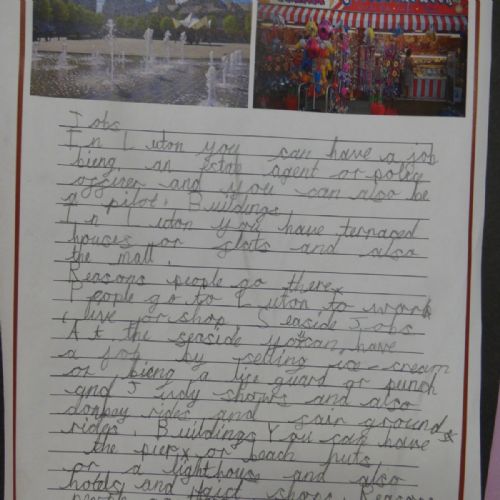 Jobs
In Luton you can have a job
bieng an estat agent or police
officer and you can also be
a pilot. Buildings
In Luton you have terraced
houses or flats and also
the mall.
Reasons people go there
People go to Luton to work
, live or shop. Seaside Jobs
At the seaside you can have
a job by selling ice-cream
or bieng a life guard or punch
and Judy shows and also
donkey rides and fair ground
rides. Buildings You can have
the pier or beach huts
or a lighthous and also
hotels and shops. Reasons